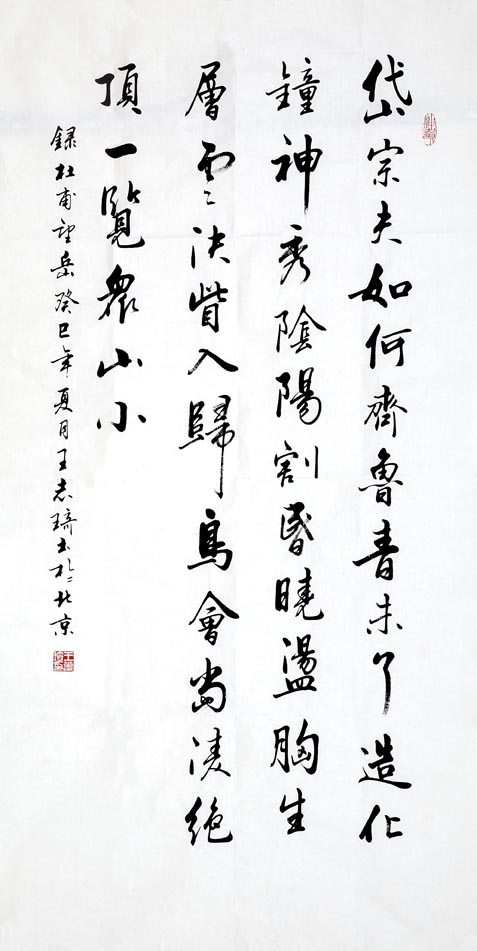 岱宗夫如何齊魯青未了造化
鐘神秀陰陽割昏曉盪胸生
層雲決眥入歸鳥會當凌絶
頂一覽眾山小
録杜甫望岳癸巳年夏月王志琦書於北京